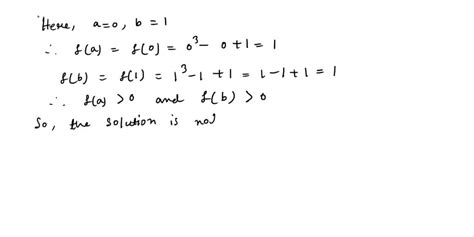 Here, a=0, b=1
∴ f(a) = f(0) = 0³ - 0 +1 = 1
f(b) = f(1) = 1³-1 +1 = 1-1+1 = 1
∴ f(a) >0 and f(b) >0
So, the solution is not